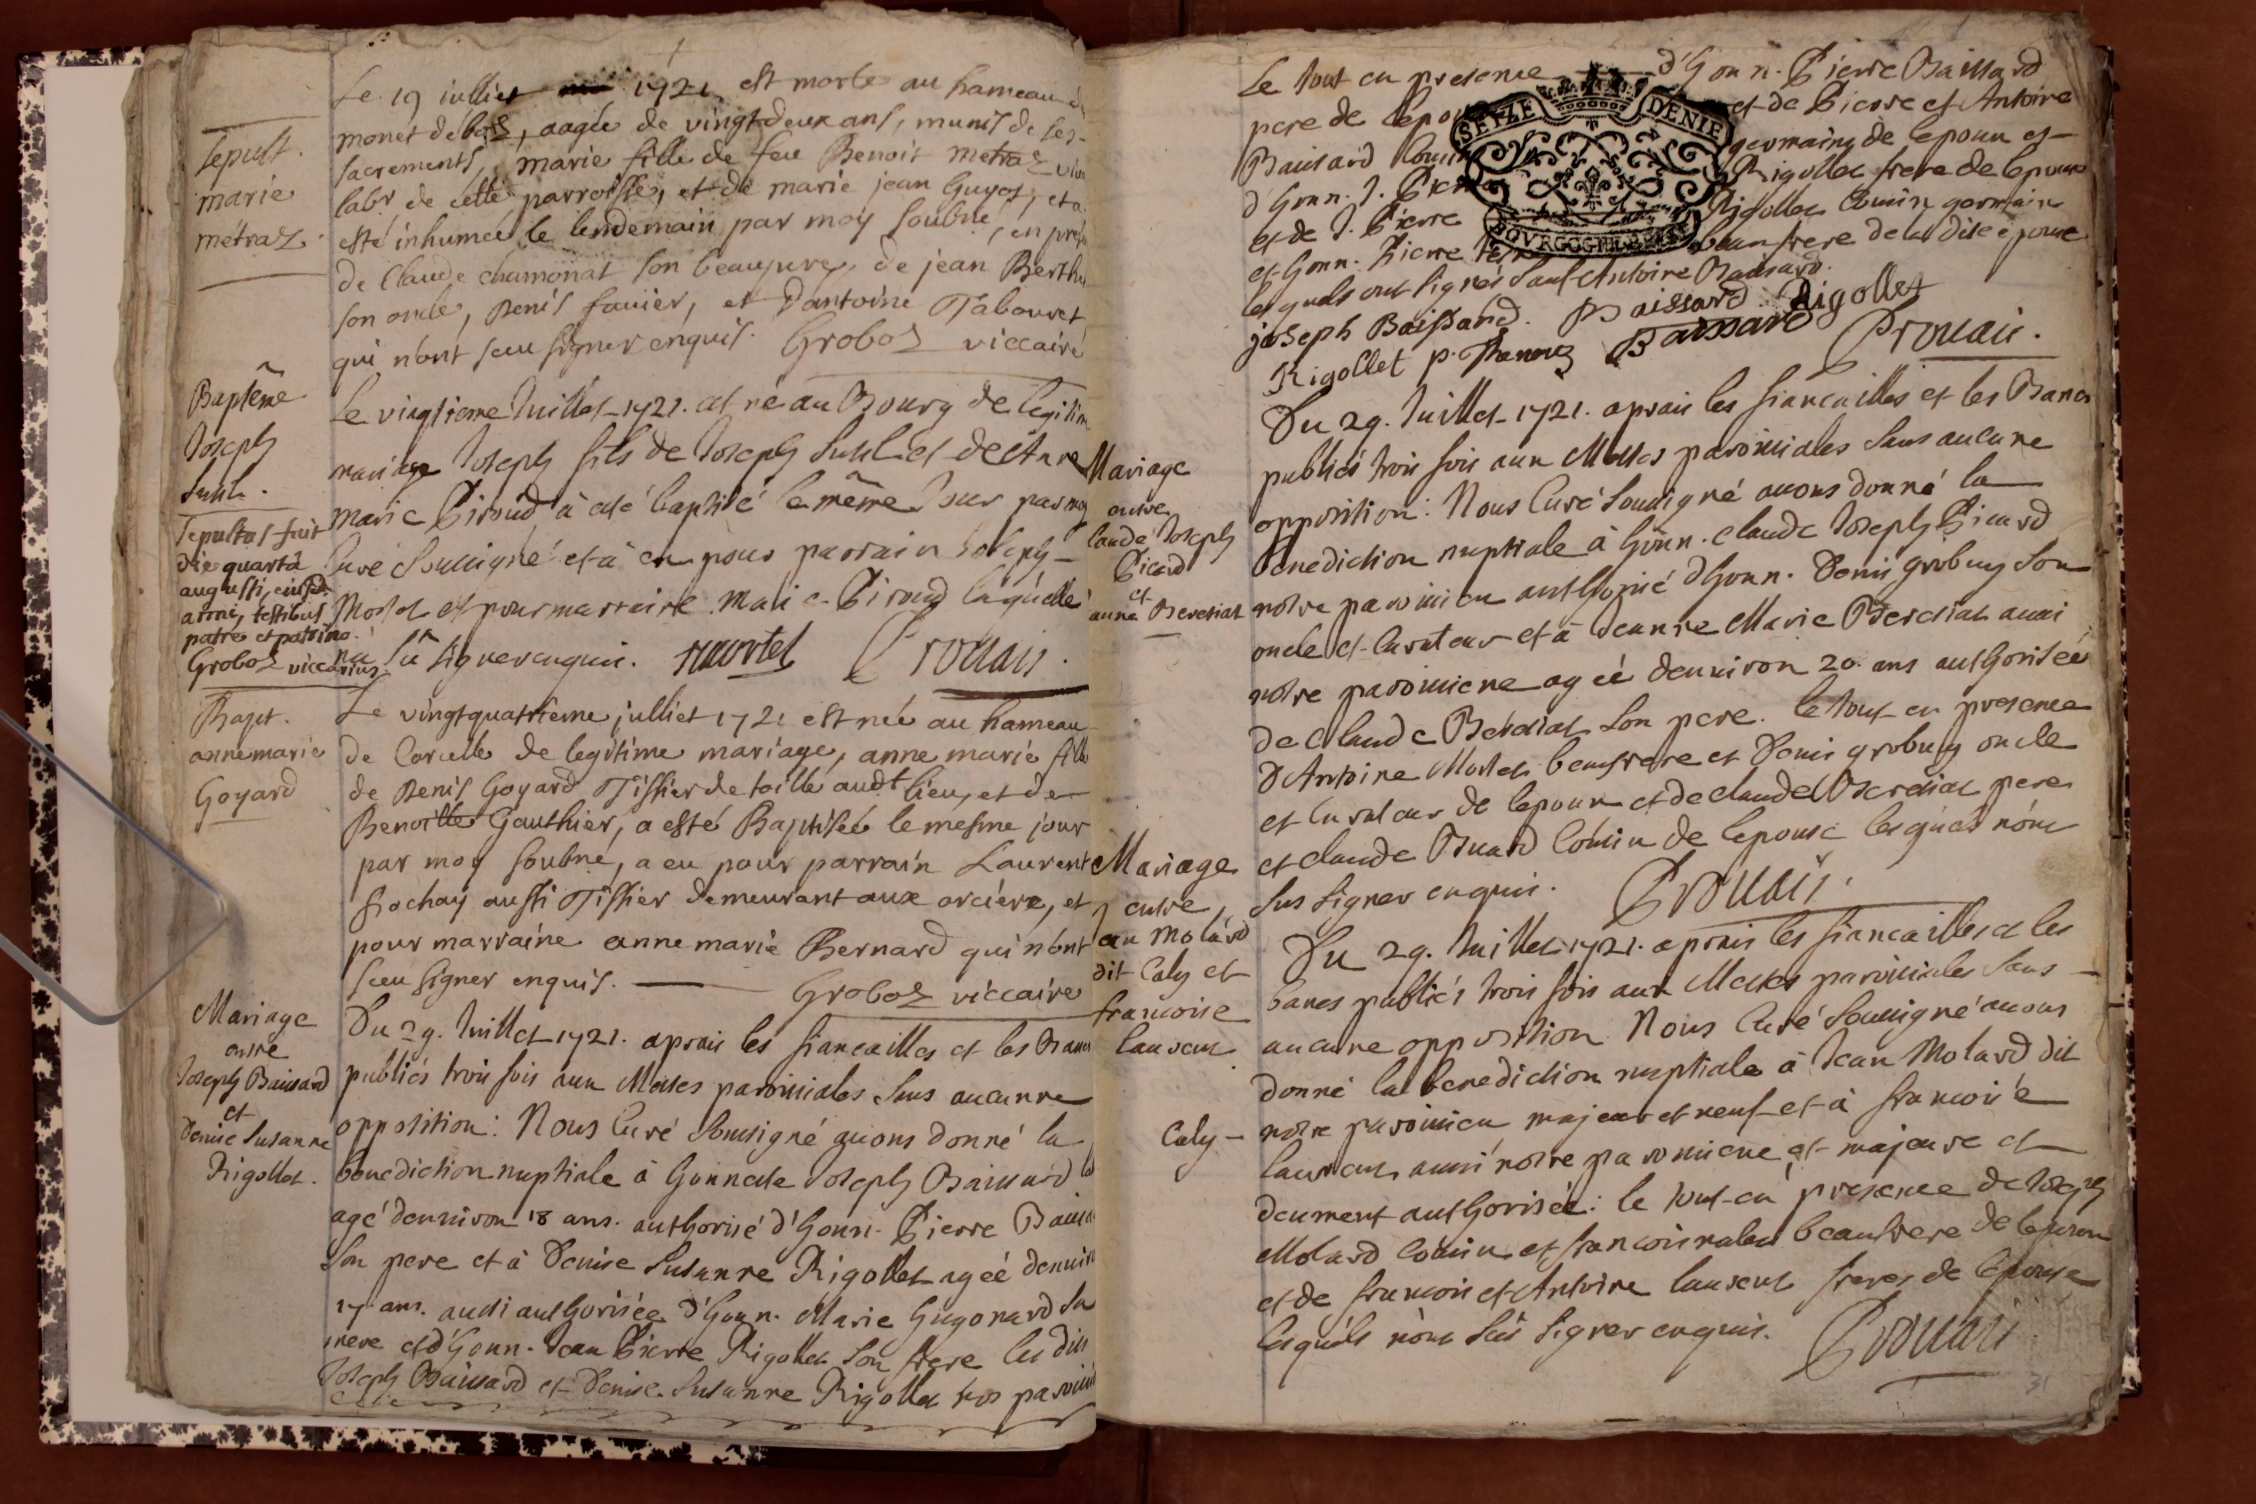 Sepult.
marie
metraz
Le 19 julliet 1721 est morte au hameau
monet debost, aagée de vingtdeux ans, munis de ses
sacrements, marie fille de feu Benoit metraz
labr de cette parroisse, et de marie jean Guyot, et a
esté inhumée le lendemain par moy soubné, en
de Claude chamonat son beaupere, de jean
son oncle, Denis favier, et dantoine Tabouret
qui n'ont sceu signer enquis. Groboz viccaire
Baptême
Joseph
Le vingtieme Juillet 1721. est né au Bourg de
mariage Joseph fils de Joseph et de Anne
Marie Piroud à été baptisé le même Jour par moy
Curé Sousigné et à eu pour parrain Joseph
Mortel et pour marraine Marie Piroud laquelle
na sû signer enquis. mortel Prouais.
Sepultus fuit
die quartâ
augusti, eiusd.
anni, testibus
patre et patrino.
Groboz viccarius
Bapt.
anne marie
Goyard
Le vingtquatrieme julliet 1721 est née au hameau
de Corcelle de legitime mariage, anne marie fille
de Denis Goyard Tissier de toille audt lieu, et de
Benoitte Gauthier, a esté Baptisée le mesme jour
par moy soubné, a eu pour parrain Laurent
Rochay aussi Tissier demeurant aux orciere, et
pour marraine anne marie Bernard qui n'ont
sceu signer enquis. Groboz viccaire
Mariage
entre
Joseph Baissard
et
Denise Susanne
Rigollet.
Du 29. Juillet 1721. aprais les fiancailles et les Bancs
publiés trois fois aux Messes paroissiales sans aucunne
opposition: Nous Curé Sousigné avons donné la
benediction nuptiale à honneste Joseph Baissard
agé denviron 18 ans. authorisé d'honn. Pierre
son pere et à Denise Susanne Rigollet ageé
17 ans. aussi authorisée d'honn. Marie Gugonard sa
mere et d'honn. Jean Pierre Rigollet son frere les dits
Joseph Baissard et Denise Susanne Rigollet nos
Le tout en presence d'honn. Pierre Baissard
pere de et de Pierre et Antoire
Baissard germains de lepoux et
d'honn. J. Rigollet frere de lepouse
et de J. Pierre Rigollet Cousin germain
et honn. Pierre beaufrere de la dite epouse
lesquels ont signés sauf Antoine Baissard.
SEIZE DENIE
BOVRGOGNE
joseph Baissard. Baissard Rigollet
Rigollet p. Baissard Prouais.
Mariage
entre
laude Joseph
Picard
et
anne Berediat
Du 29. Juillet 1721. aprais les fiancailles et les Bancs
publiés trois fois aux Messes paroissiales sans aucune
opposition: Nous Curé Sousigné avons donné la
benediction nuptiale à honn. claude Joseph Picard
notre paroissien authorisé d'honn. Denis grobuy son
oncle et Curateur et à Jeanne Marie Berediat aussi
notre paroissiene ageé denviron 20. ans authorisée
de Claude Berediat son pere. le tout en presence
d'Antoine Mortel beaufrere et Denis grobuy oncle
et Curateur de lepoux et de claude Berediat pere
et claude Buard Cousin de lepouse lesquels n'ont
sus signer enquis. Prouais.
Mariage
entre
an Molard
dit Caly et
francoise
laurent
Caly
Du 29. Juillet 1721. aprais les fiancailles et les
bancs publiés trois fois aux Messes paroissiales sans
aucune opposition Nous Curé Sousigné avons
donné la benediction nuptiale à Jean Molard dit
notre paroissien majeur et veuf et à francoise
laurent aussi notre paroissiene et majeure et
deument authorisée: le tout en presence de Joseph
Molard Cousin et francois beaufrere de lepoux
et de francois et Antoire laurent freres de lepouse
lesquels n'ont sus signer enquis. Prouais
31